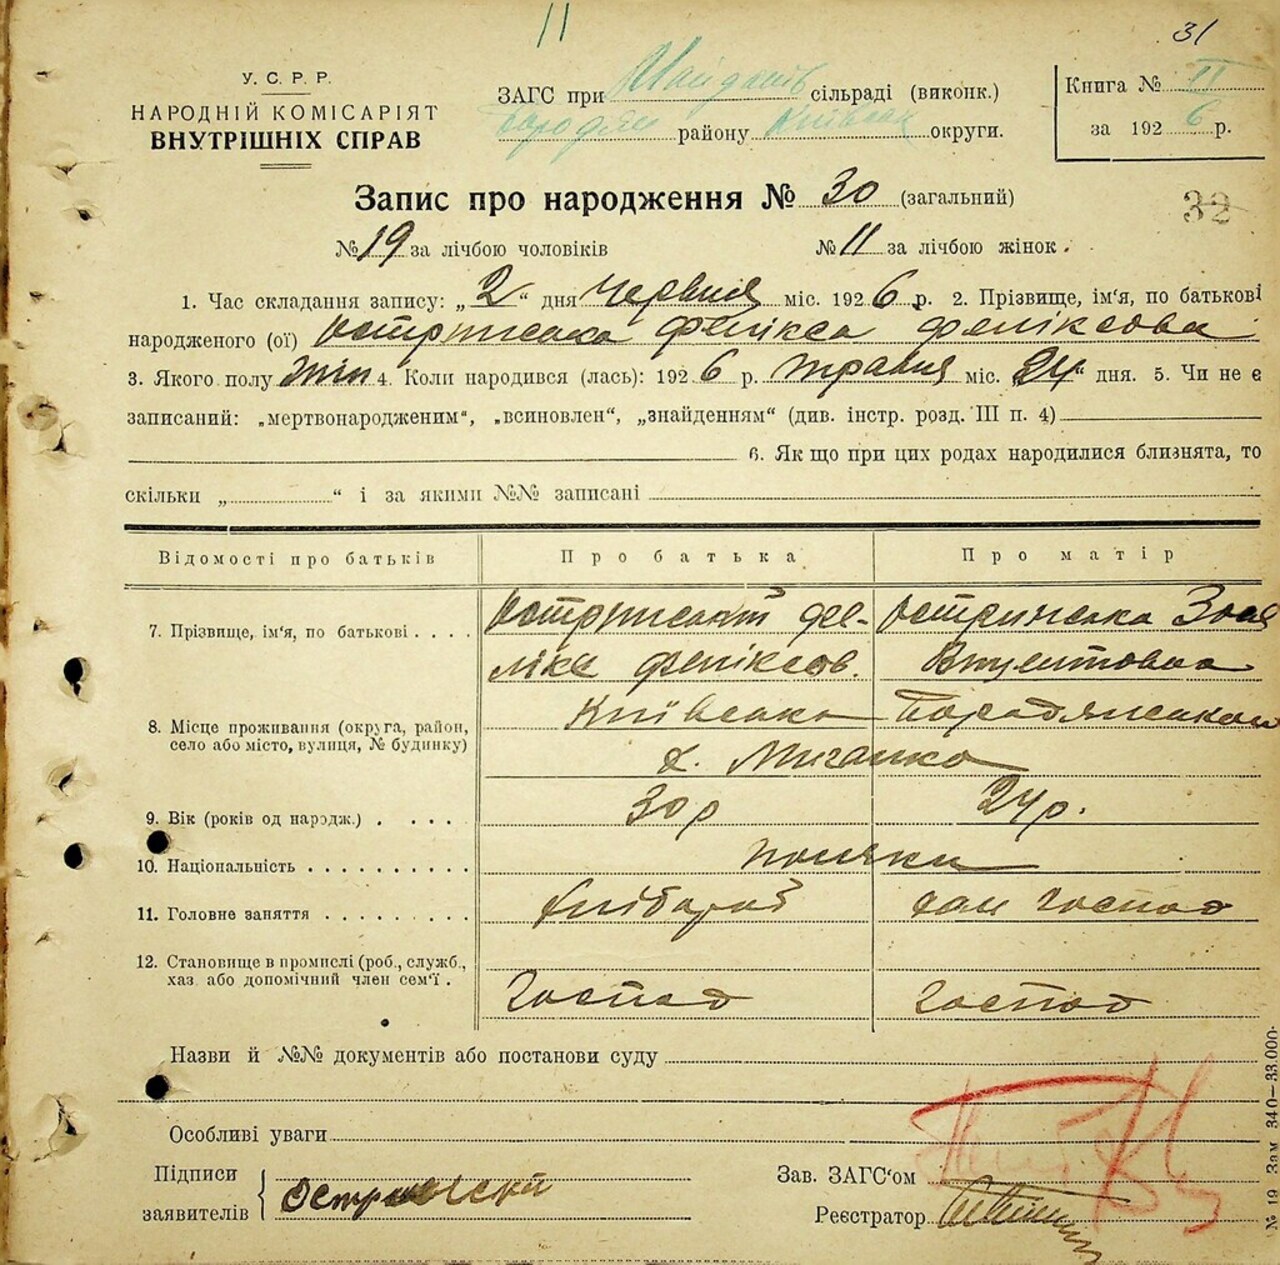 11
31
У. С. Р. Р.
НАРОДНІЙ КОМІСАРІЯТ
ВНУТРІШНІХ СПРАВ
ЗАГС при сільраді (виконк.)
району округи.
Книга № II
за 1926 р.
Запис про народження № 30 (загальний)
32
№ 19 за лічбою чоловіків № 11 за лічбою жінок.
1. Час складання запису: „2“ дня червня міс. 1926 р. 2. Прізвище, ім'я, по батькові
народженого (ої) Остринська Фелікса Феліксовна
3. Якого полу жін 4. Коли народився (лась): 1926 р. травня міс. „24“ дня. 5. Чи не є
записаний: „мертвонародженим“, „всиновлен“, „знайденням“ (див. інстр. розд. III п. 4)
6. Як що при цих родах народилися близнята, то
скільки „ “ і за якими №№ записані
Відомості про батьків Про батька Про матір
7. Прізвище, ім'я, по батькові . . . . Остринський Фе- Остринська Зося
лікс Феліксов.
8. Місце проживання (округа, район, Київська
село або місто, вулиця, № будинку) х.
9. Вік (років од народж.) . . . . 30 р 24 р.
10. Національність . . . . . . . . . . поляки
11. Головне заняття . . . . . . . . . хлібороб дом господ
12. Становище в промислі (роб., служб.,
хаз. або допомічний член сем'ї . господ господ
Назви й №№ документів або постанови суду
Особливі уваги
Підписи
заявителів
Зав. ЗАГС'ом
Реєстратор
№ 19 Зам 340—33.000.